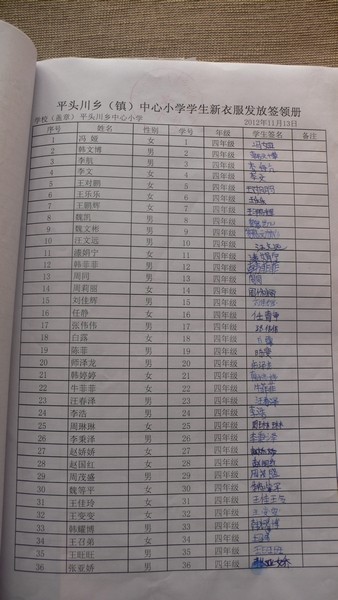 平头川乡（镇）中心小学学生新衣服发放签领册
学校（盖章）平头川乡中心小学 2012年11月13日
序号 姓名 性别 学号 年级 学生签名 备注
1 冯 娅 女 1 四年级
2 韩文博 男 2 四年级
3 李航 男 3 四年级
4 李文 女 4 四年级 李文
5 王对鹏 男 5 四年级
6 王乐乐 女 6 四年级
7 王鹏辉 女 7 四年级 王鹏辉
8 魏凯 男 8 四年级
9 魏文彬 男 9 四年级
10 汪文远 男 10 四年级 汪文远
11 潘娟宁 女 11 四年级
12 韩菲菲 女 12 四年级 韩菲菲
13 周同 男 13 四年级 周同
14 周莉丽 女 14 四年级
15 刘佳辉 男 15 四年级
16 任静 女 16 四年级 任静
17 张伟伟 男 17 四年级 张伟伟
18 白露 女 18 四年级 白露
19 陈菲 男 19 四年级
20 师泽龙 男 20 四年级
21 韩婷婷 女 21 四年级
22 牛菲菲 女 22 四年级 牛菲菲
23 汪春泽 男 23 四年级 汪春泽
24 李浩 男 24 四年级 李浩
25 周琳琳 女 25 四年级 周琳琳
26 李秉泽 男 26 四年级 李秉泽
27 赵娇娇 女 27 四年级
28 赵国红 女 28 四年级
29 周茂盛 男 29 四年级 周茂盛
30 魏等平 女 30 四年级
31 王佳玲 女 31 四年级
32 王变变 女 32 四年级
33 韩耀博 男 33 四年级 韩耀博
34 王召弟 女 34 四年级
35 王旺旺 男 35 四年级 王旺旺
36 张亚娇 男 36 四年级